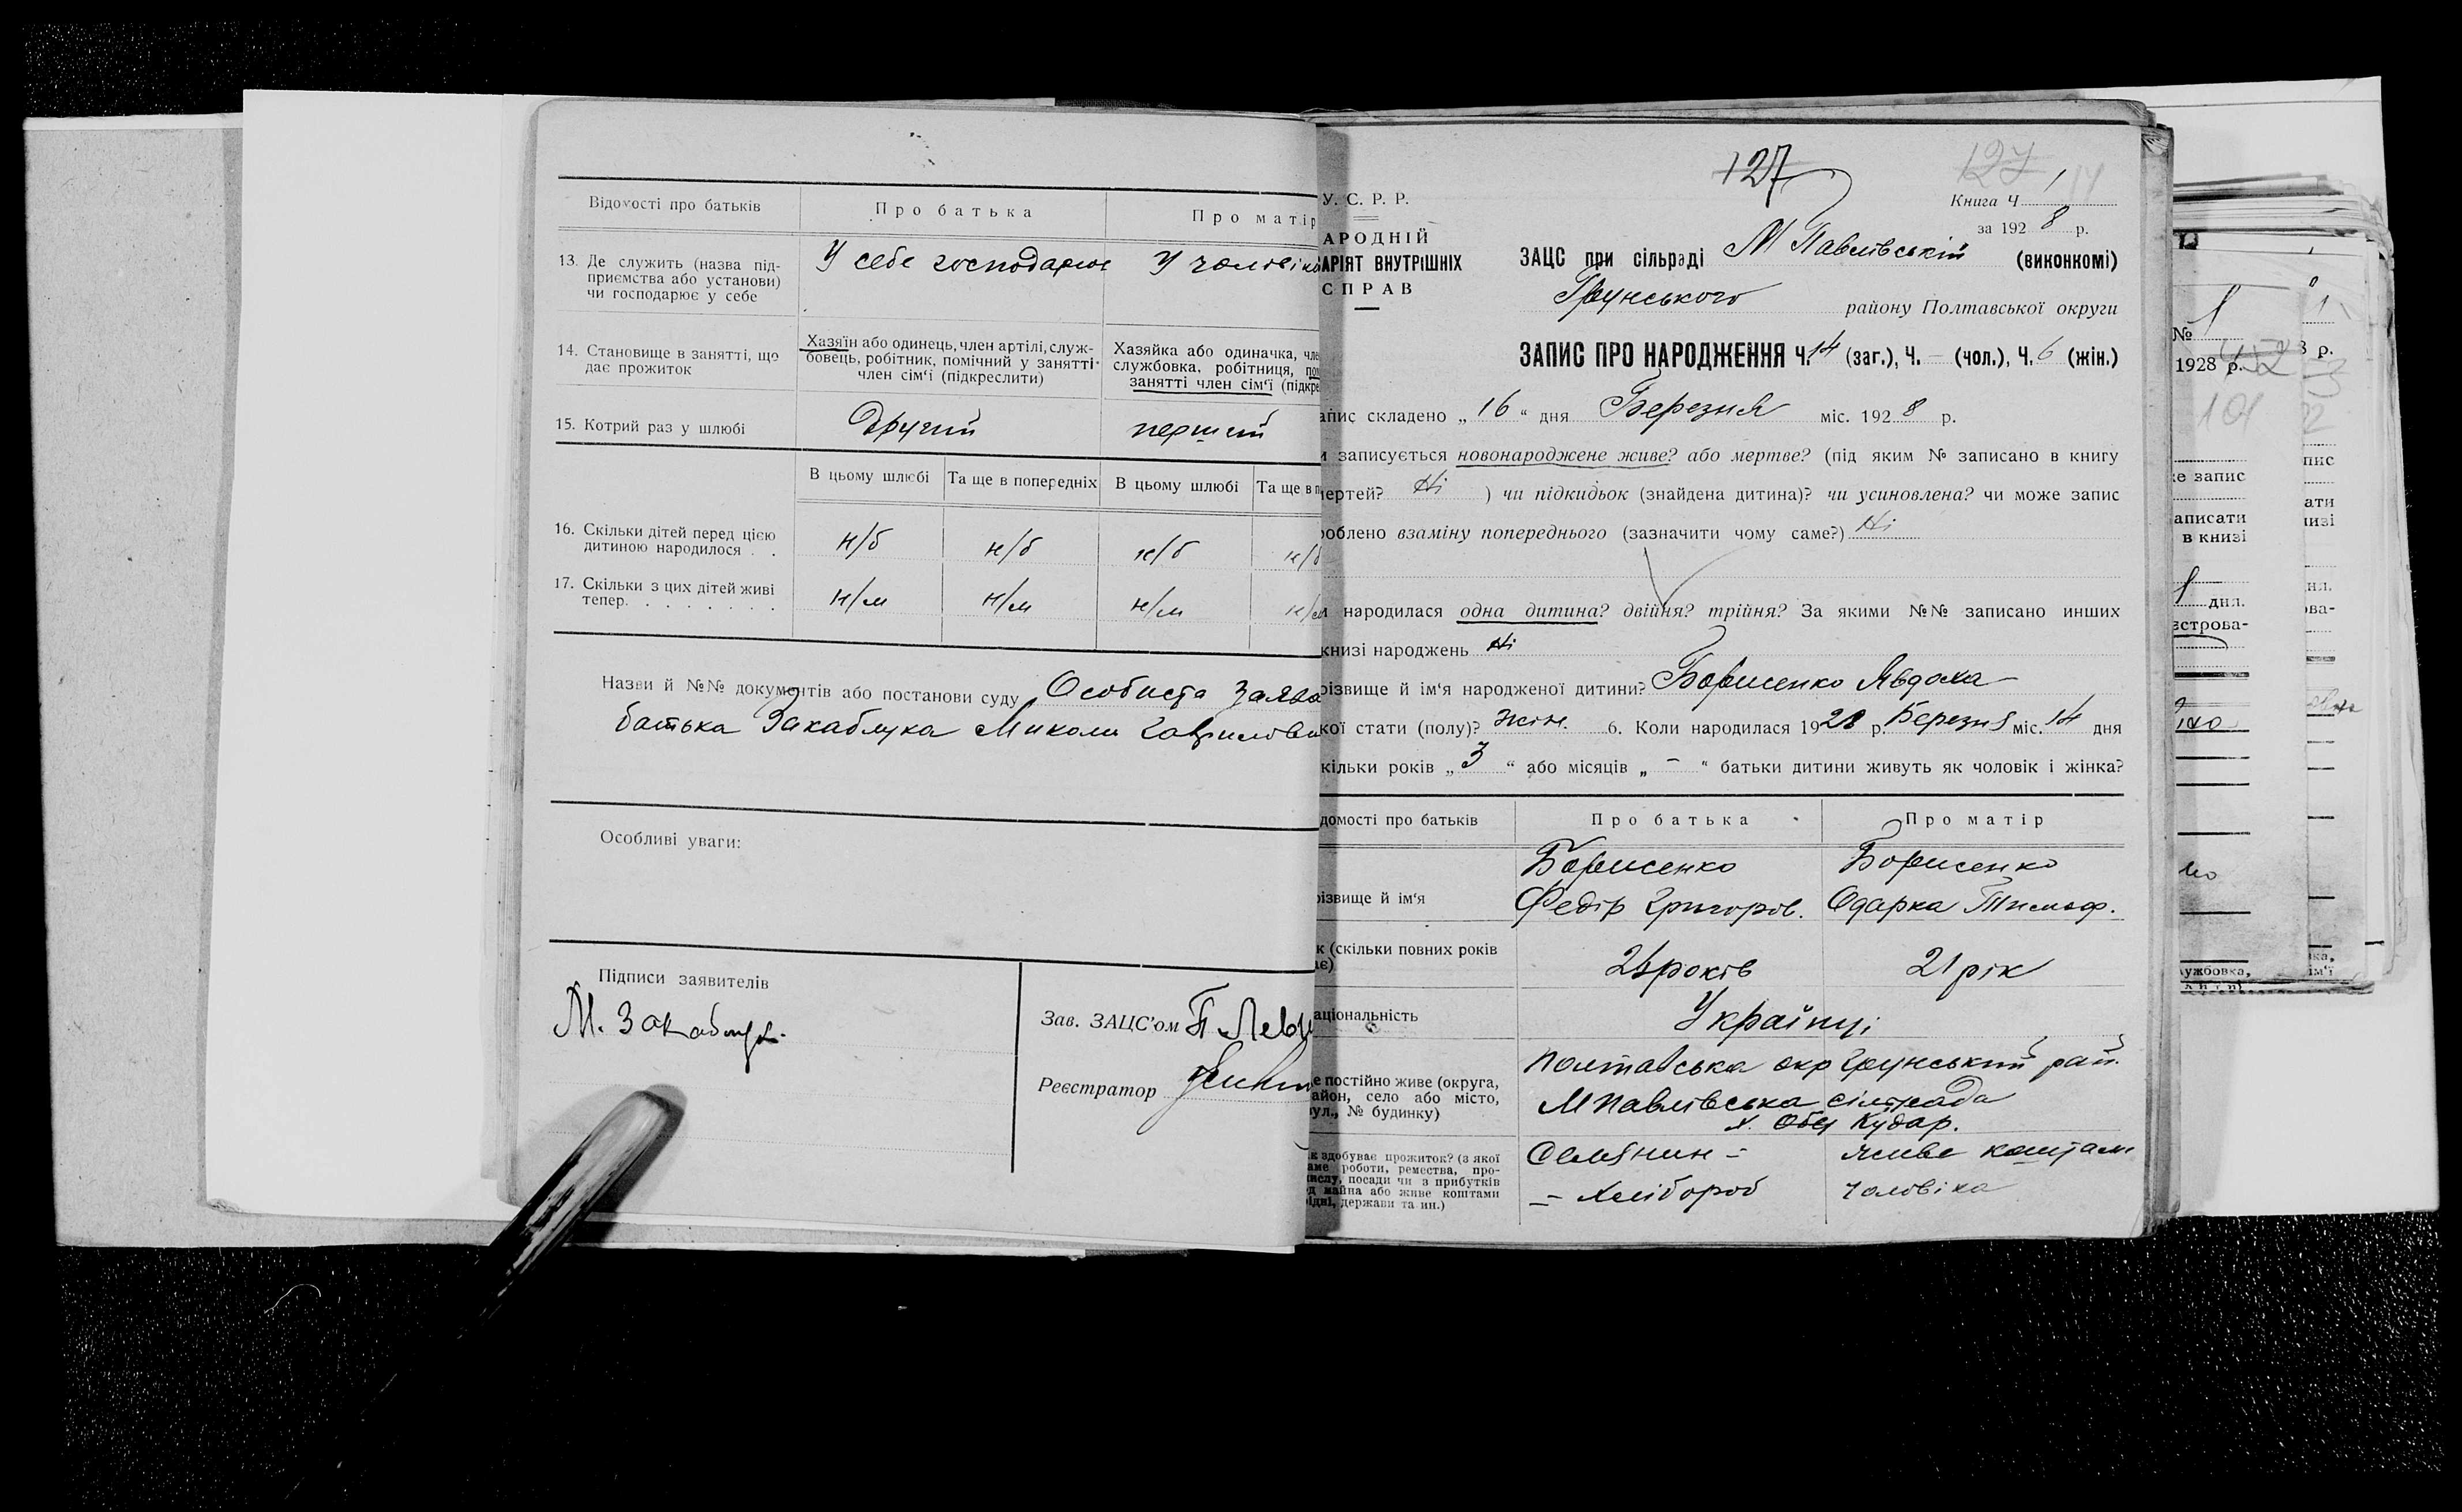 Відомості про батьків
Про батька
Про матір
13. Де служить (назва під-
приємства або установи)
чи господарює у себе
У себе господарює
У чоловіка
14. Становище в занятті, що
дає прожиток
Хазяїн або одинець, член артілі, служ-
бовець, робітник, помічний у занятті
член сім'ї (підкреслити)
Хазяйка або одиначка, чле
службовка, робітниця, по
занятті член сім'ї (підкре
15. Котрий раз у шлюбі
Другий
перший
В цьому шлюбі
Та ще в попередніх
В цьому шлюбі
Та ще в п
16. Скільки дітей перед цією
дитиною народилося . .
н/б
н/б
н/б
н/б
17. Скільки з цих дітей живі
тепер. . . . . . . .
н/м
н/м
н/м
н/м
Назви й №№ документів або постанови суду Особиста заява
батька Закаблука Миколи
Особливі уваги:
Підписи заявителів
М. Закаблук
Зав. ЗАЦС'ом
Реєстратор
127
127
14
У. С. Р. Р.
АРОДНІЙ
АРІЯТ ВНУТРІШНІХ
СПРАВ
Книга Ч 1
за 1928 р.
ЗАЦС при сільраді М Павлівській (виконкомі)
Грунського району Полтавської округи
ЗАПИС ПРО НАРОДЖЕННЯ Ч. 14 (заг.), Ч. – (чол.), Ч. 6 (жін.)
апис складено „ 16 “ дня Березня міс. 1928 р.
и записується новонароджене живе? або мертве? (під яким № записано в книгу
мертей? Ні ) чи підкидьок (знайдена дитина)? чи усиновлена? чи може запис
роблено взаміну попереднього (зазначити чому саме?) Ні
и народилася одна дитина? двійня? трійня? За якими №№ записано инших
книзі народжень Ні
різвище й ім'я народженої дитини? Борисенко Явдоха
кої стати (полу)? жін. 6. Коли народилася 1928 р. Березня міс. 14 дня
кільки років „ 3 “ або місяців „ – “ батьки дитини живуть як чоловік і жінка?
домості про батьків
Про батька
Про матір
різвище й ім'я
Борисенко
Федір Григоров.
Борисенко
Одарка Тимоф.
к (скільки повних років
ає)
років
21 рік
аціональність
Українці
е постійно живе (округа,
айон, село або місто,
ул., № будинку)
Полтавська окр Грунський рай.
М Павлівська сільрада
х.
к здобуває прожиток? (з якої
аме роботи, ремества, про-
мислу, посади чи з прибутків
д майна або живе коштами
ідні, держави та ин.)
Селянин –
– хлібороб
живе коштам
чоловіка
№ 1
1928 р.
101
е запис
аписати
в книзі
дня.
єстрова-
ужбовка,